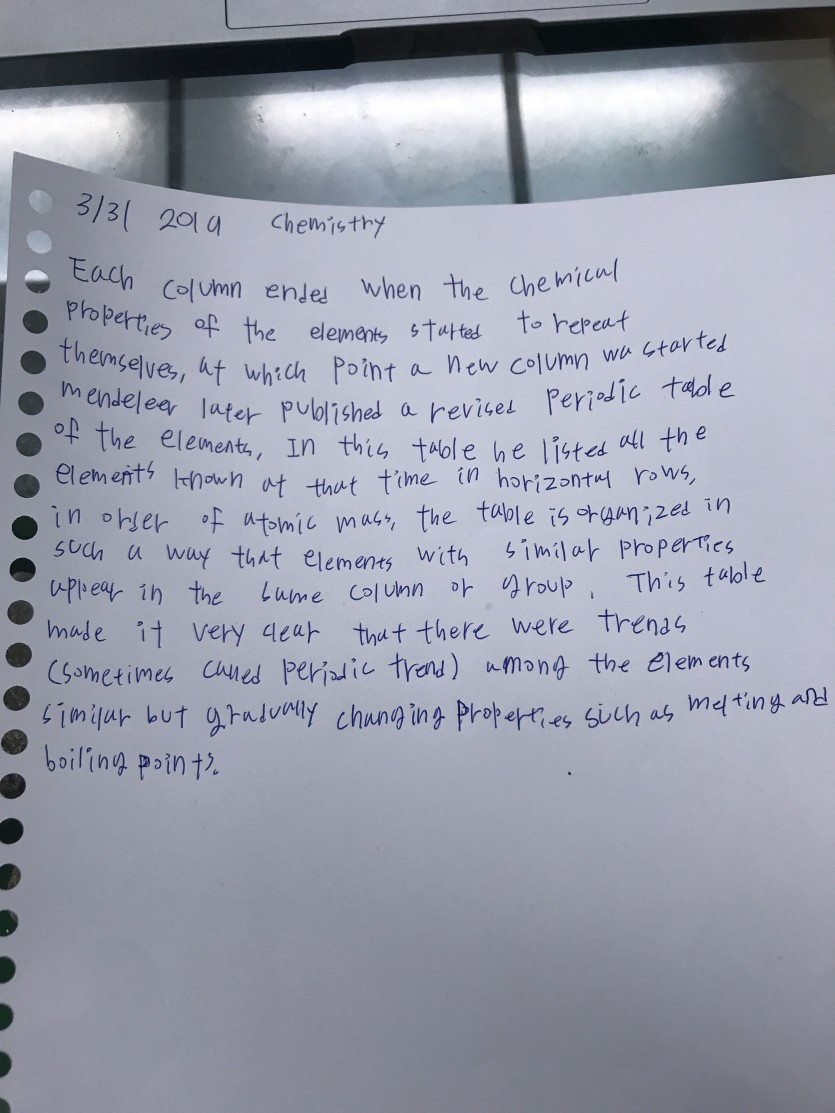 3/31 2019 Chemistry
Each column ended when the chemical
properties of the elements started to repeat
themselves, at which point a new column wa started
mendeleev later published a revised periodic table
of the elements, In this table he listed all the
elements known at that time in horizontal rows,
in order of atomic mass, the table is organized in
such a way that elements with similar properties
appear in the same column or group. This table
made it very clear that there were trends
(sometimes called periodic trend) among the elements
similar but gradually changing properties such as melting and
boiling points.